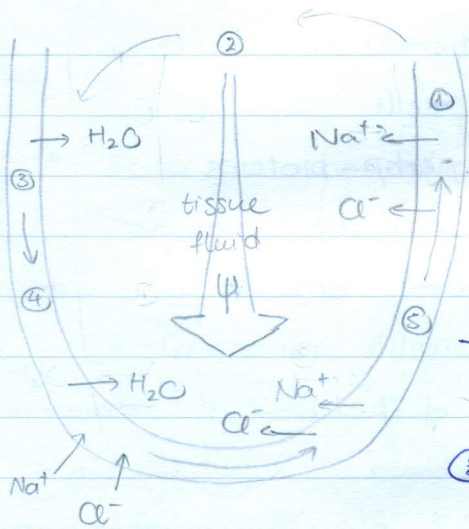 ②
①
→ H₂O
Na⁺ ←
③
tissue
fluid
ψ
Cl⁻ ←
④
⑤
→ H₂O
Na⁺ ←
Cl⁻ ←
Na⁺
Cl⁻